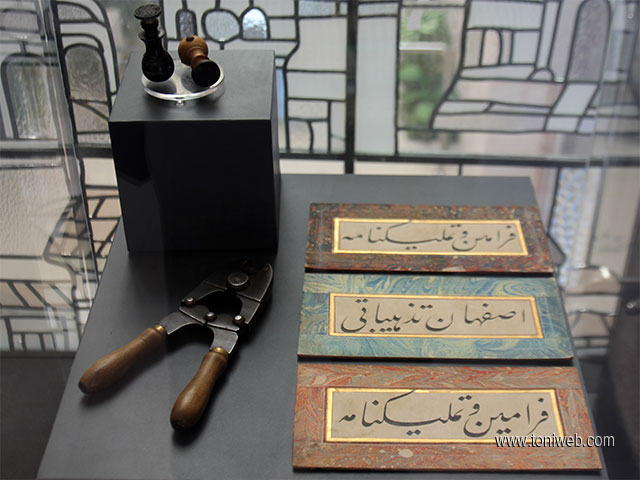 فرامین و تملیکنامه
اصفهان تذهیباتی
فرامین و تملیکنامه
www.toniweb.com